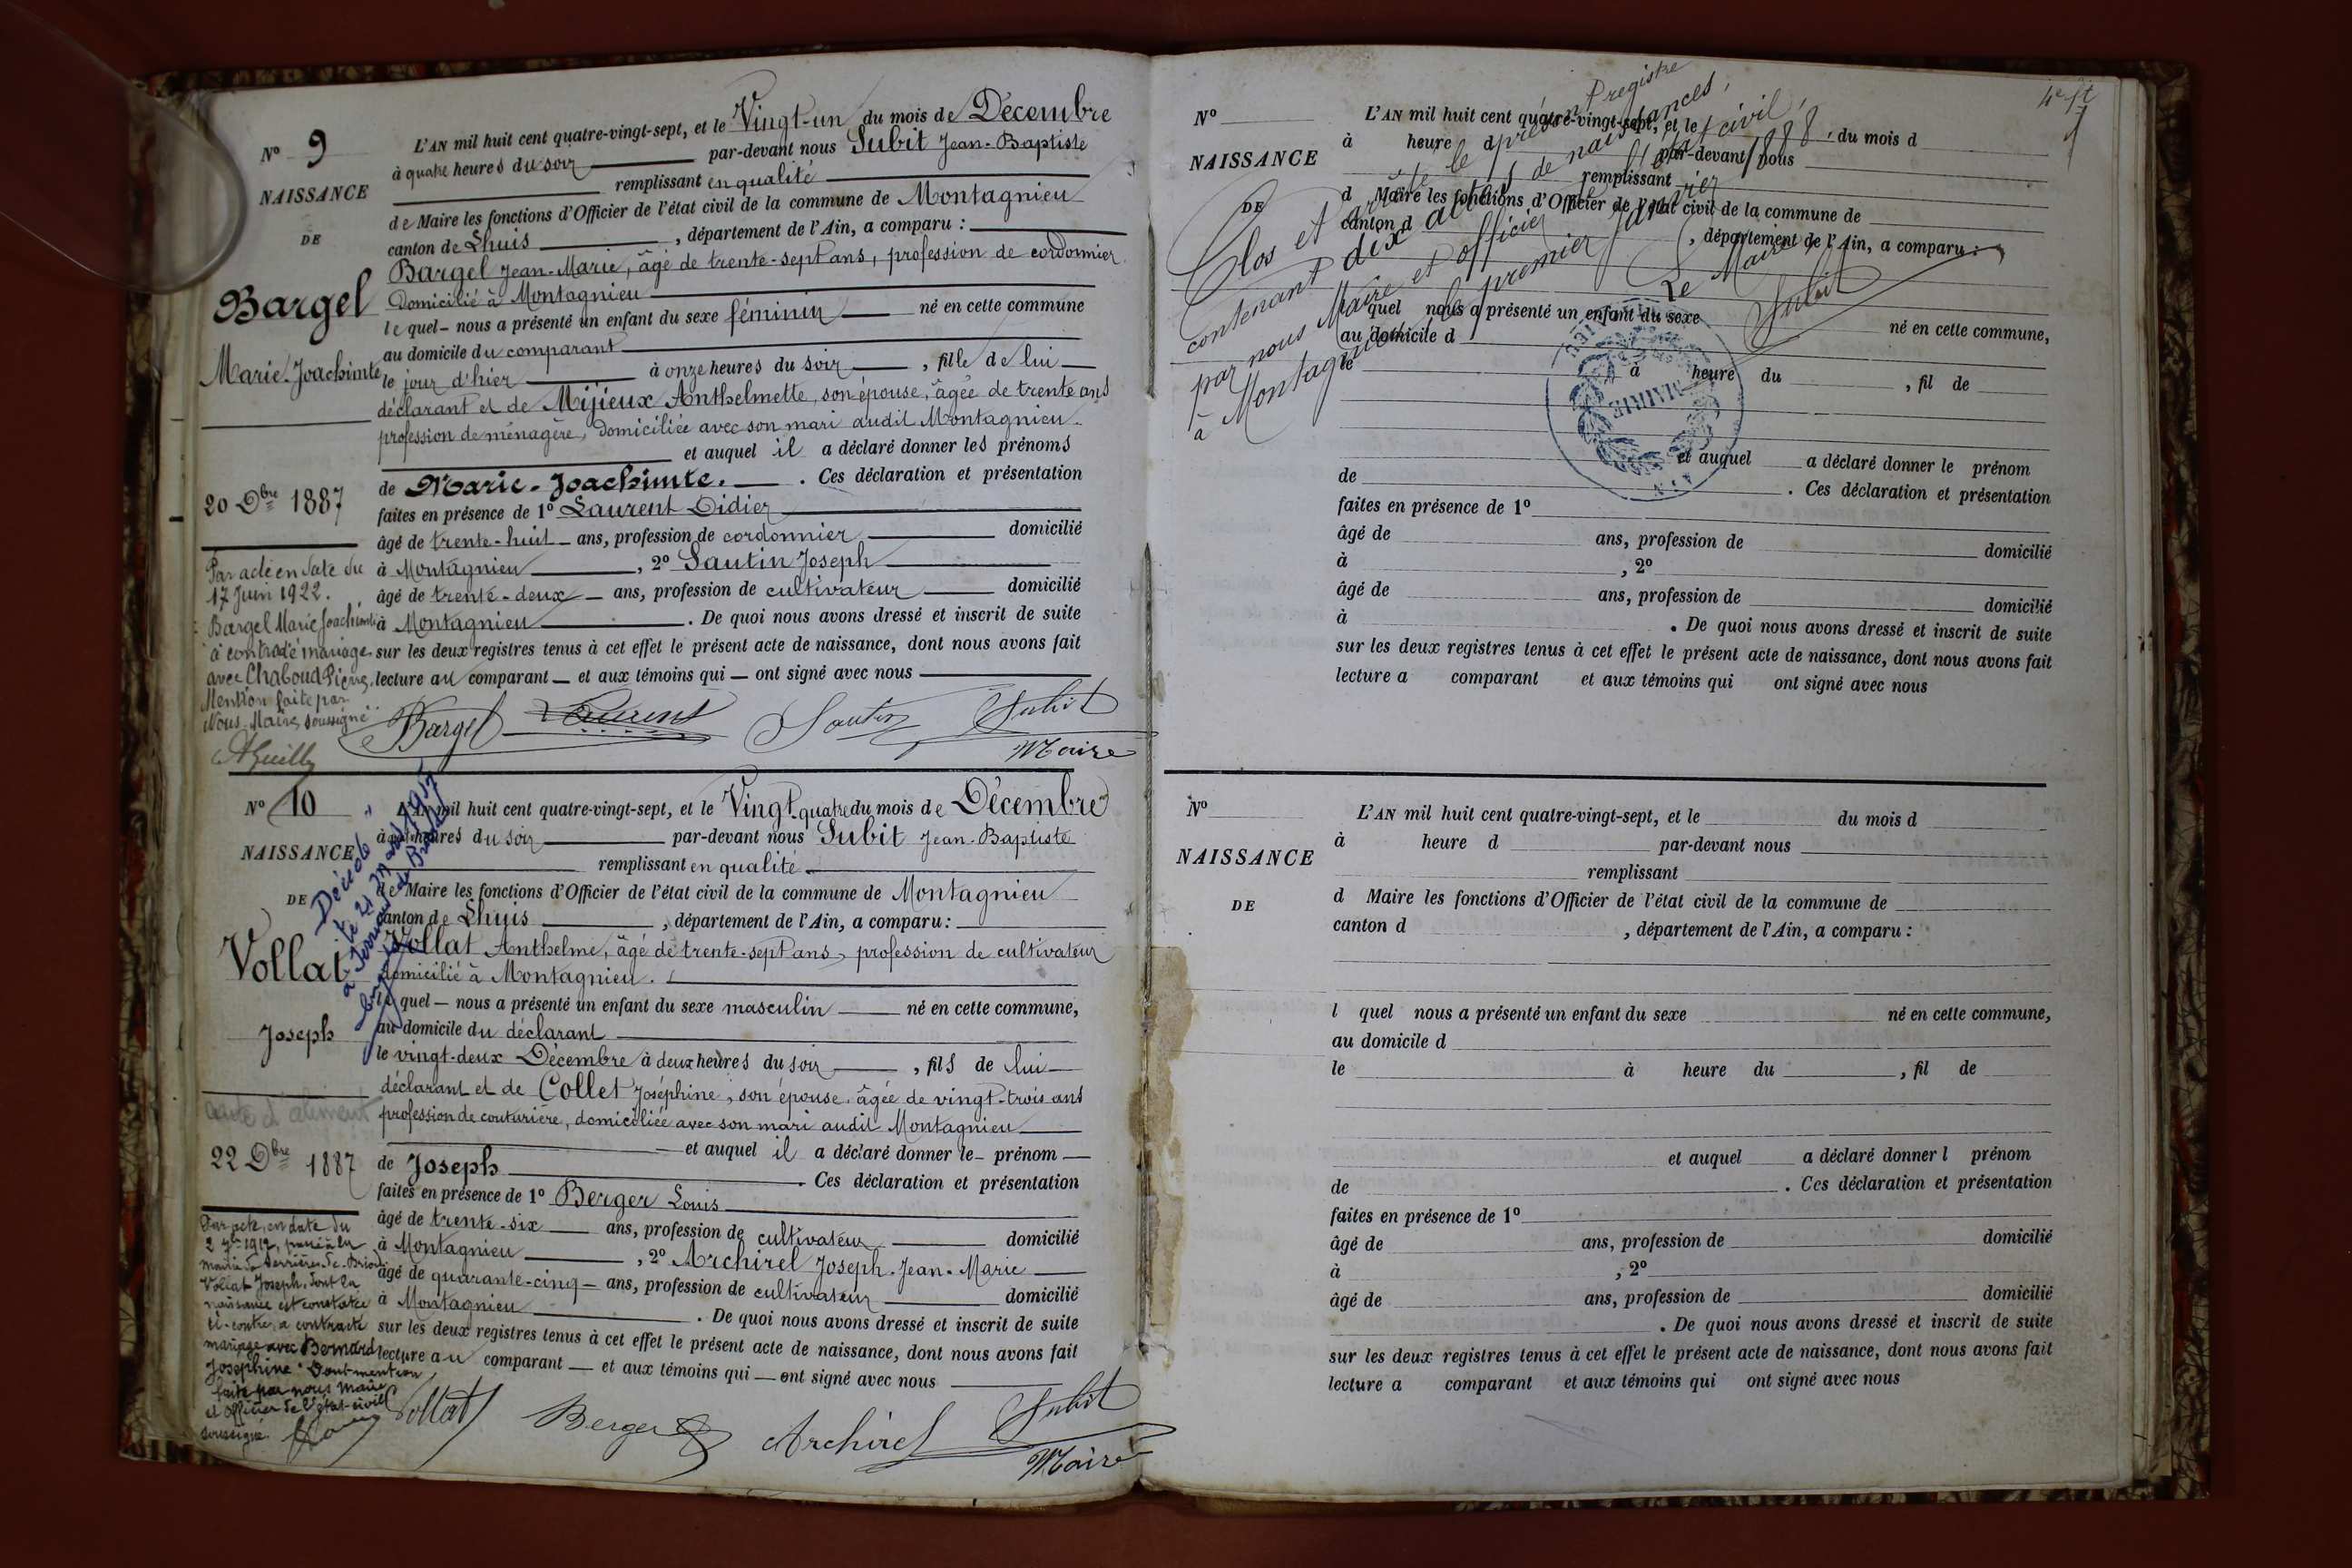 N° 9
NAISSANCE
DE
Bargel
Marie-Joachimte
20 Dbre 1887
Par acte en date du
17 Juin 1922.
Bargel Marie Joachimte
a contracté mariage
avec Chaboud Pierre.
Mention faite par
Nous, Maire, soussigné
L'AN mil huit cent quatre-vingt-sept, et le Vingt-un du mois de Décembre
à quatre heures du soir par-devant nous Subit Jean-Baptiste
remplissant en qualité
de Maire les fonctions d'Officier de l'état civil de la commune de Montagnieu
canton de Lhuis , département de l'Ain, a comparu :
Bargel Jean-Marie, âgé de trente-sept ans, profession de cordonnier
domicilié à Montagnieu
lequel nous a présenté un enfant du sexe féminin né en cette commune
au domicile du comparant
le jour d'hier à onze heures du soir , fille de lui
déclarant et de Mijieux Anthelmette, son épouse, âgée de trente ans
profession de ménagère, domiciliée avec son mari audit Montagnieu
et auquel il a déclaré donner les prénoms
de Marie-Joachimte. . Ces déclaration et présentation
faites en présence de 1° Laurent Didier
âgé de trente-huit ans, profession de cordonnier domicilié
à Montagnieu , 2° Sautin Joseph
âgé de trente-deux ans, profession de cultivateur domicilié
à Montagnieu . De quoi nous avons dressé et inscrit de suite
sur les deux registres tenus à cet effet le présent acte de naissance, dont nous avons fait
lecture au comparant et aux témoins qui ont signé avec nous
Bargel Laurent Sautin Subit
Maire
N° 10
NAISSANCE
DE
Vollat
Joseph
Décédé
22 Dbre 1887
Par acte, en date du
mairie de Serrières-de-Briord
Vollat Joseph, dont la
naissance est constatée
ci-contre, a contracté
mariage avec Bernard
Joséphine. Dont mention
faite par nous maire
et officier de l'état-civil
soussigné.
L'AN mil huit cent quatre-vingt-sept, et le Vingt-quatre du mois de Décembre
heures du soir par-devant nous Subit Jean-Baptiste
remplissant en qualité
de Maire les fonctions d'Officier de l'état civil de la commune de Montagnieu
canton de Lhuis , département de l'Ain, a comparu :
Vollat Anthelme, âgé de trente-sept ans, profession de cultivateur
domicilié à Montagnieu.
lequel nous a présenté un enfant du sexe masculin né en cette commune,
au domicile du déclarant
le vingt-deux Décembre à deux heures du soir , fils de lui
déclarant et de Collet Joséphine, son épouse, âgée de vingt-trois ans
profession de couturière, domiciliée avec son mari audit Montagnieu
et auquel il a déclaré donner le prénom
de Joseph . Ces déclaration et présentation
faites en présence de 1° Berger Louis
âgé de trente-six ans, profession de cultivateur domicilié
à Montagnieu , 2° Archirel Joseph-Jean-Marie
âgé de quarante-cinq ans, profession de cultivateur domicilié
à Montagnieu . De quoi nous avons dressé et inscrit de suite
sur les deux registres tenus à cet effet le présent acte de naissance, dont nous avons fait
lecture au comparant et aux témoins qui ont signé avec nous
Vollat Berger Archirel Subit
Maire
N°
NAISSANCE
DE
L'AN mil huit cent quatre-vingt-sept, et le du mois d
à heure d par-devant nous
remplissant
d Maire les fonctions d'Officier de l'état civil de la commune de
canton d , département de l'Ain, a comparu :
quel nous a présenté un enfant du sexe né en cette commune,
au domicile d
le à heure du , fil de
et auquel a déclaré donner le prénom
de . Ces déclaration et présentation
faites en présence de 1°
âgé de ans, profession de domicilié
à , 2°
âgé de ans, profession de domicilié
à . De quoi nous avons dressé et inscrit de suite
sur les deux registres tenus à cet effet le présent acte de naissance, dont nous avons fait
lecture a comparant et aux témoins qui ont signé avec nous
Clos et arrêté le présent registre
contenant dix actes de naissances,
par nous Maire et officier de l'état civil,
à Montagnieu le premier janvier 1888.
Le Maire
Subit
MAIRIE
AIN
N°
NAISSANCE
DE
L'AN mil huit cent quatre-vingt-sept, et le du mois d
à heure d par-devant nous
remplissant
d Maire les fonctions d'Officier de l'état civil de la commune de
canton d , département de l'Ain, a comparu :
l quel nous a présenté un enfant du sexe né en cette commune,
au domicile d
le à heure du , fil de
et auquel a déclaré donner l prénom
de . Ces déclaration et présentation
faites en présence de 1°
âgé de ans, profession de domicilié
à , 2°
âgé de ans, profession de domicilié
. De quoi nous avons dressé et inscrit de suite
sur les deux registres tenus à cet effet le présent acte de naissance, dont nous avons fait
lecture a comparant et aux témoins qui ont signé avec nous